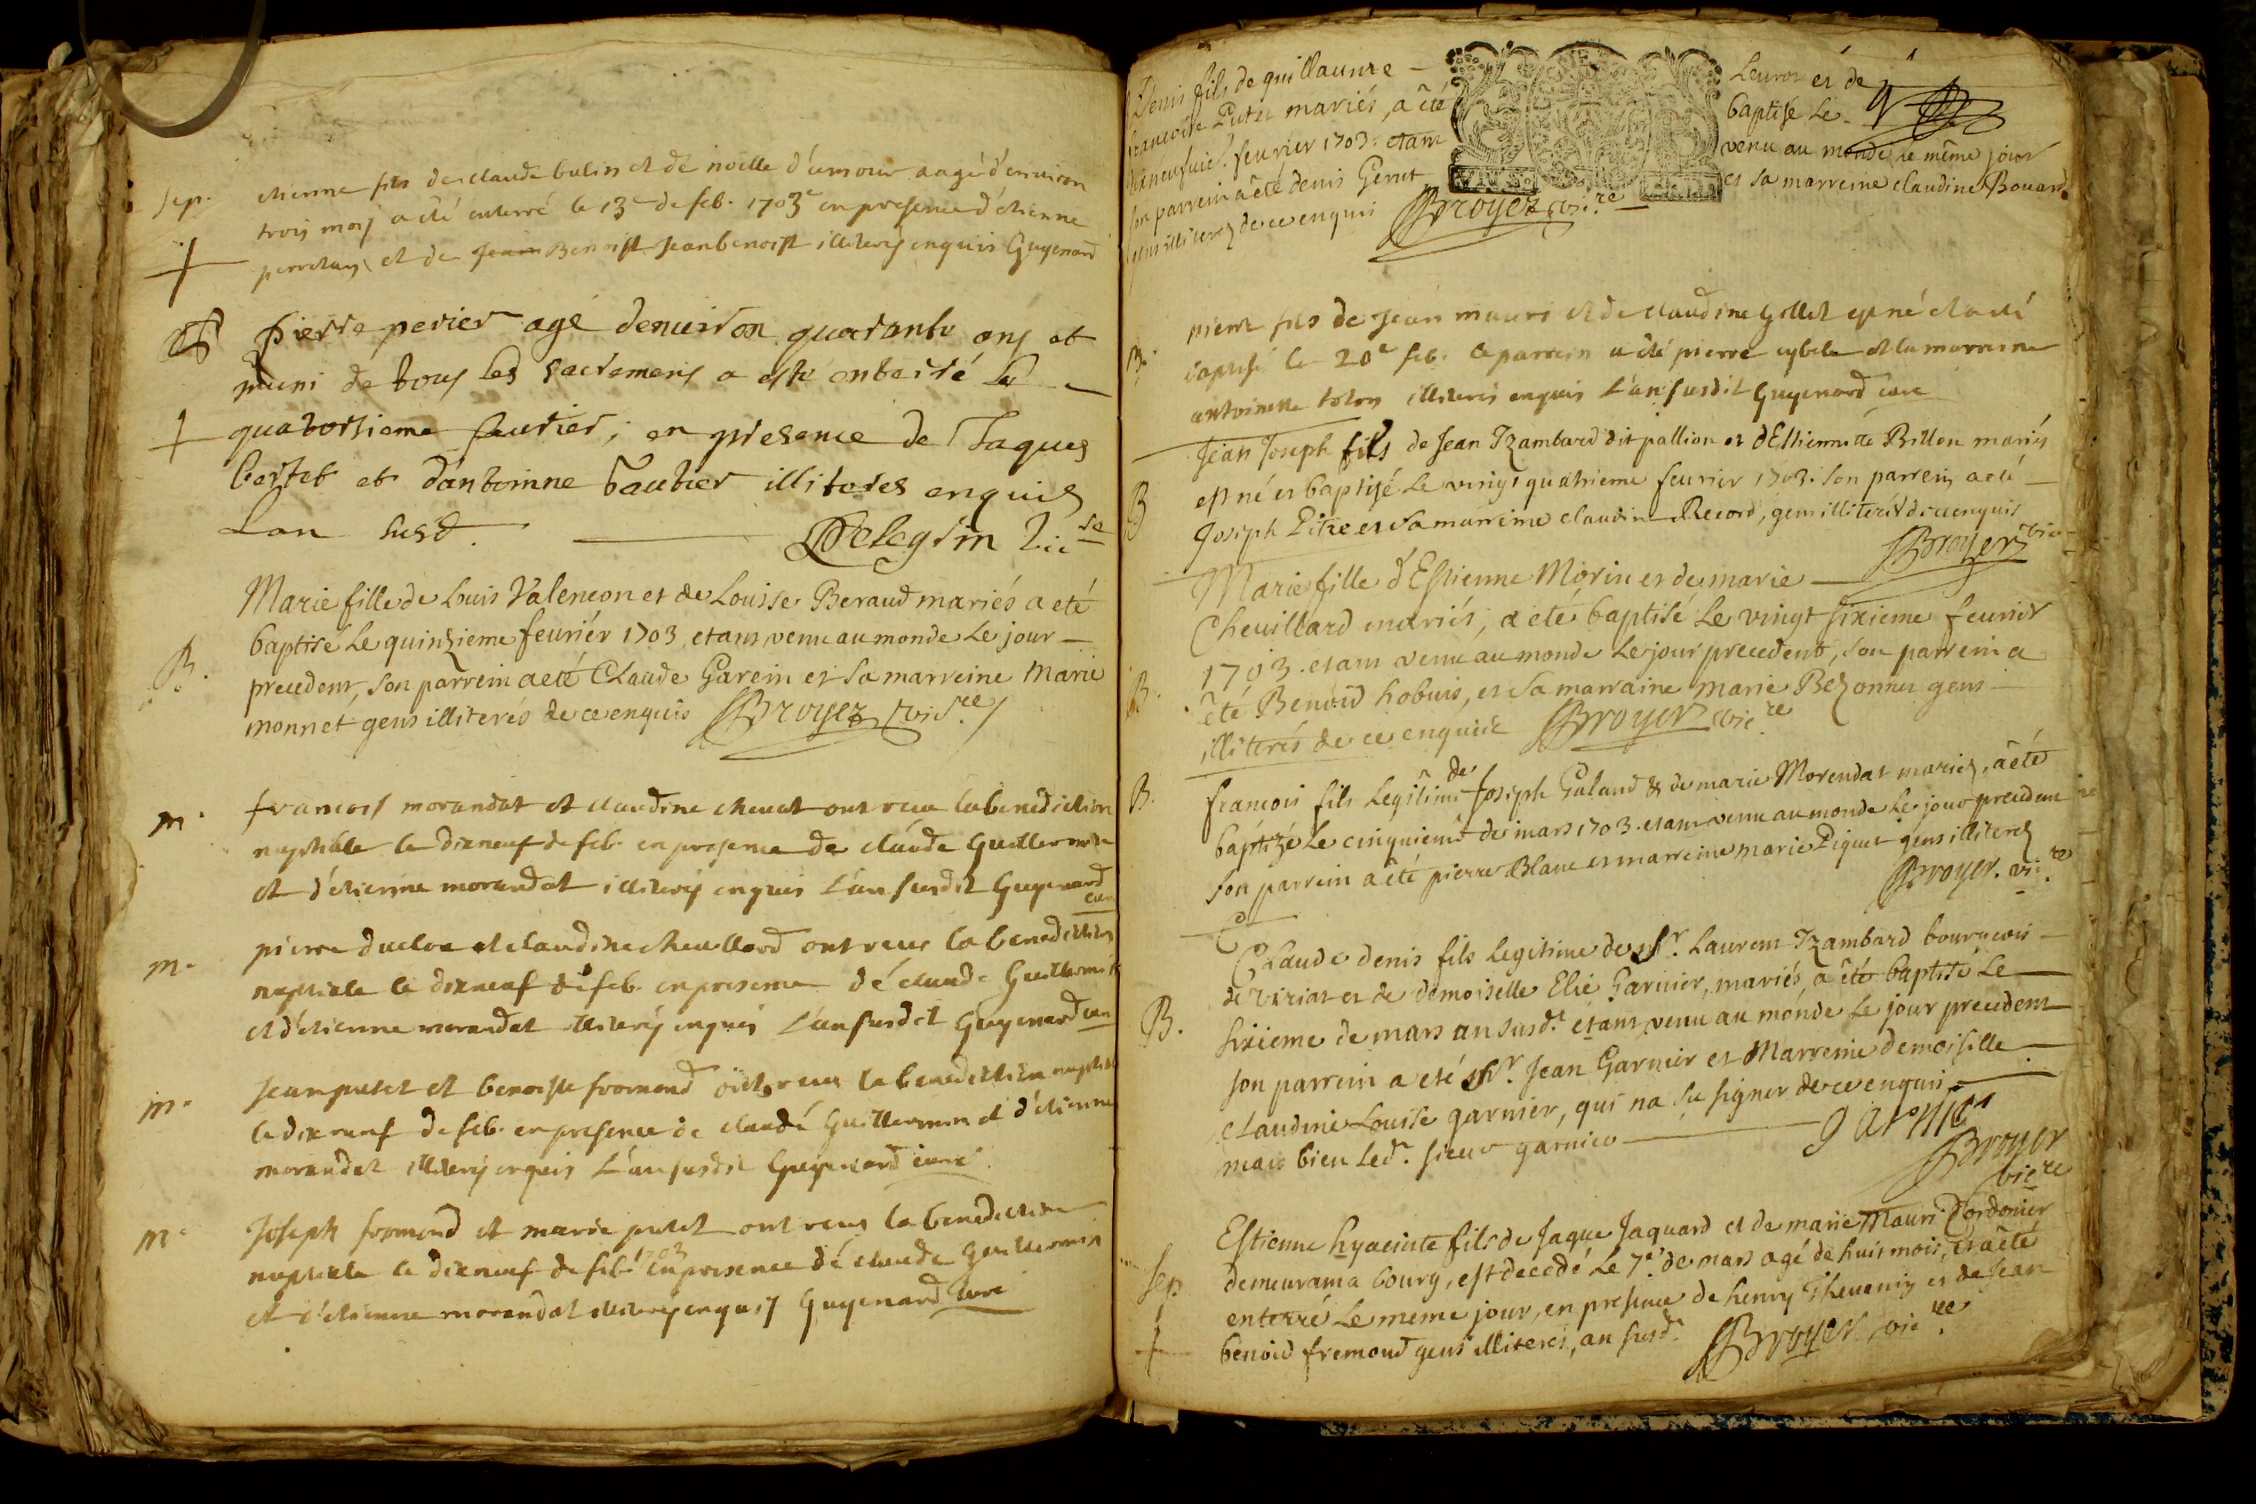 Sep.
etienne fils de claude bulin et de noelle d'amour aagé d'environ
trois moys a été enterré le 13e de feb. 1703 en presence d'etienne
et de Jean Benoist Jean benoist illiterés enquis Guyenard
Pierre perier agé denuiron quarante ans et
muni de tous les sacremens a esté enterré le
quatorsieme feurier, en presence de Jaques
bertet et d'antoinne vautier illiteres enquis
Lan susd. Pelegrin vic re
Marie fille de Louis Valencon et de Louise Beraud mariés a eté
B.
baptisé le quinzieme feurier 1703, etant venu au monde le jour
precedent, son parrein a eté Claude Garein et sa marreine Marie
monnet gens illiterés de ce enquis Broyer vic re
m.
francois morandat et claudine chenat ont receu la benediction
nuptiale le dixneuf de feb. en presence de claude Guillermin
et d'etienne morandat illiterés enquis l'an susdit Guyenard
curé
m.
pierre duclos et claudine cheuillard ont receu la benediction
nuptiale le dixneuf de feb. en presence de claude Guillermin
et d'etienne morandat illiterés enquis l'an susdit Guyenard curé
m.
Jean putet et benoiste fromond ont receu la benediction nuptiale
le dixneuf de feb. en presence de claude Guillermin et d'etienne
morandat illiterés enquis l'an susdit Guyenard curé
m.
Joseph fromond et marie putet ont receu la benediction
nuptiale le dixneuf de feb. 1703 en presence de claude Guillermin
et d'etienne morandat illiterés enquis Guyenard curé
Denis fils de guillaume Leuron et de
francoise Putet mariés, a été baptisé Le
dixneufuie. feurier 1703. etant venu au monde le même jour
son parrein a été denis Gerut et sa marreine claudine Bouard
gens illiterés de ce enquis Broyer vic.re
B.
pierre fils de Jean mauri et de claudine Gillet est né et a été
baptisé le 20e feb. le parrein a été pierre et la marreine
antoinette illiterés enquis l'an susdit Guyenard curé
Jean Joseph fils de Jean Izambard dit pallion et d'Estiennette Billon mariés
B
est né et baptizé Le vingt quatrieme feurier 1703. son parrein a eté
Joseph Pitre et sa marreine claudine Record, gens illiterés de ce enquis
Broyer vic.
Marie fille d'Estienne Morin et de marie
Cheuillard mariés, a eté baptisé Le vingt sixieme feurier
1703. etant venu au monde Le jour precedent, son parrein a
B.
été Benoid hobuis, et sa marraine marie Bezonnet gens
illiterés de ce enquise Broyer vic.re
B.
francois fils Legitime de Joseph Galand & de marie Morendat mariés, a été
baptizé Le cinquieme de mars 1703. etant venu au monde Le jour precedent
son parrein a été pierre Blanc et marreine marie Piquet gens illiterés
Broyer. vic.re
Claude denis fils legitime de Sr. Laurent Izambard bourgeois
de viriat et de demoiselle Elie Garnier, mariés, a été baptisé Le
B.
sixieme de mars an susd.t etant venu au monde Le jour precedent
son parrein a eté Sr. Jean Garnier et Marreine demoiselle
claudine Louise garnier, qui na su signer de ce enquis
mais bien Led.t sieur garnier garnier
Broyer
vic.re
Estienne hyacinte fils de Jaque Jaquard et de marie Mauri Cordonier
Sep
demeurant a bourg, est decedé Le 7e de mars agé de huit mois, et a été
enterré Le meme jour, en presence de henry Theuenin et de Jean
benoid fremond gens illiteres, an susd.t Broyer vic.re